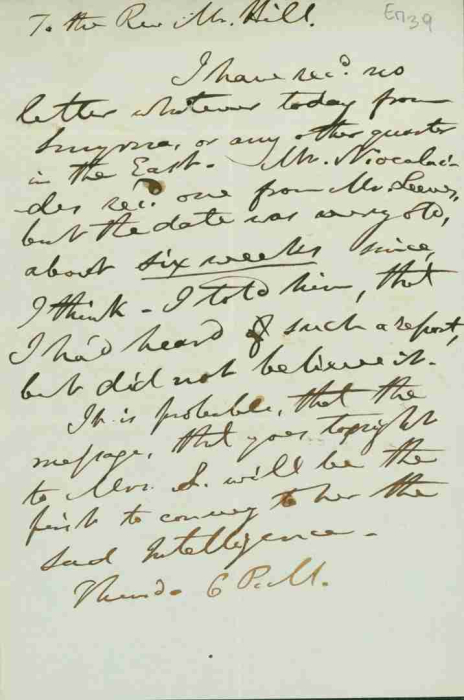 To the Rev Mr. Hill.
Eπ39
I have recd. no
letter whatever today from
Smyrna, or any other quarter
in the East. Mr. Nicolai-
des recd. one from Mr. Leeves,
but the date was very old,
about six weeks since,
I think - I told him, that
I had heard of such a report,
but did not believe it.
It is probable, that the
message, that goes tonight
to Mrs. L. will be the
first to convey to her the
sad Intelligence -
Thursd. 6 P.M.